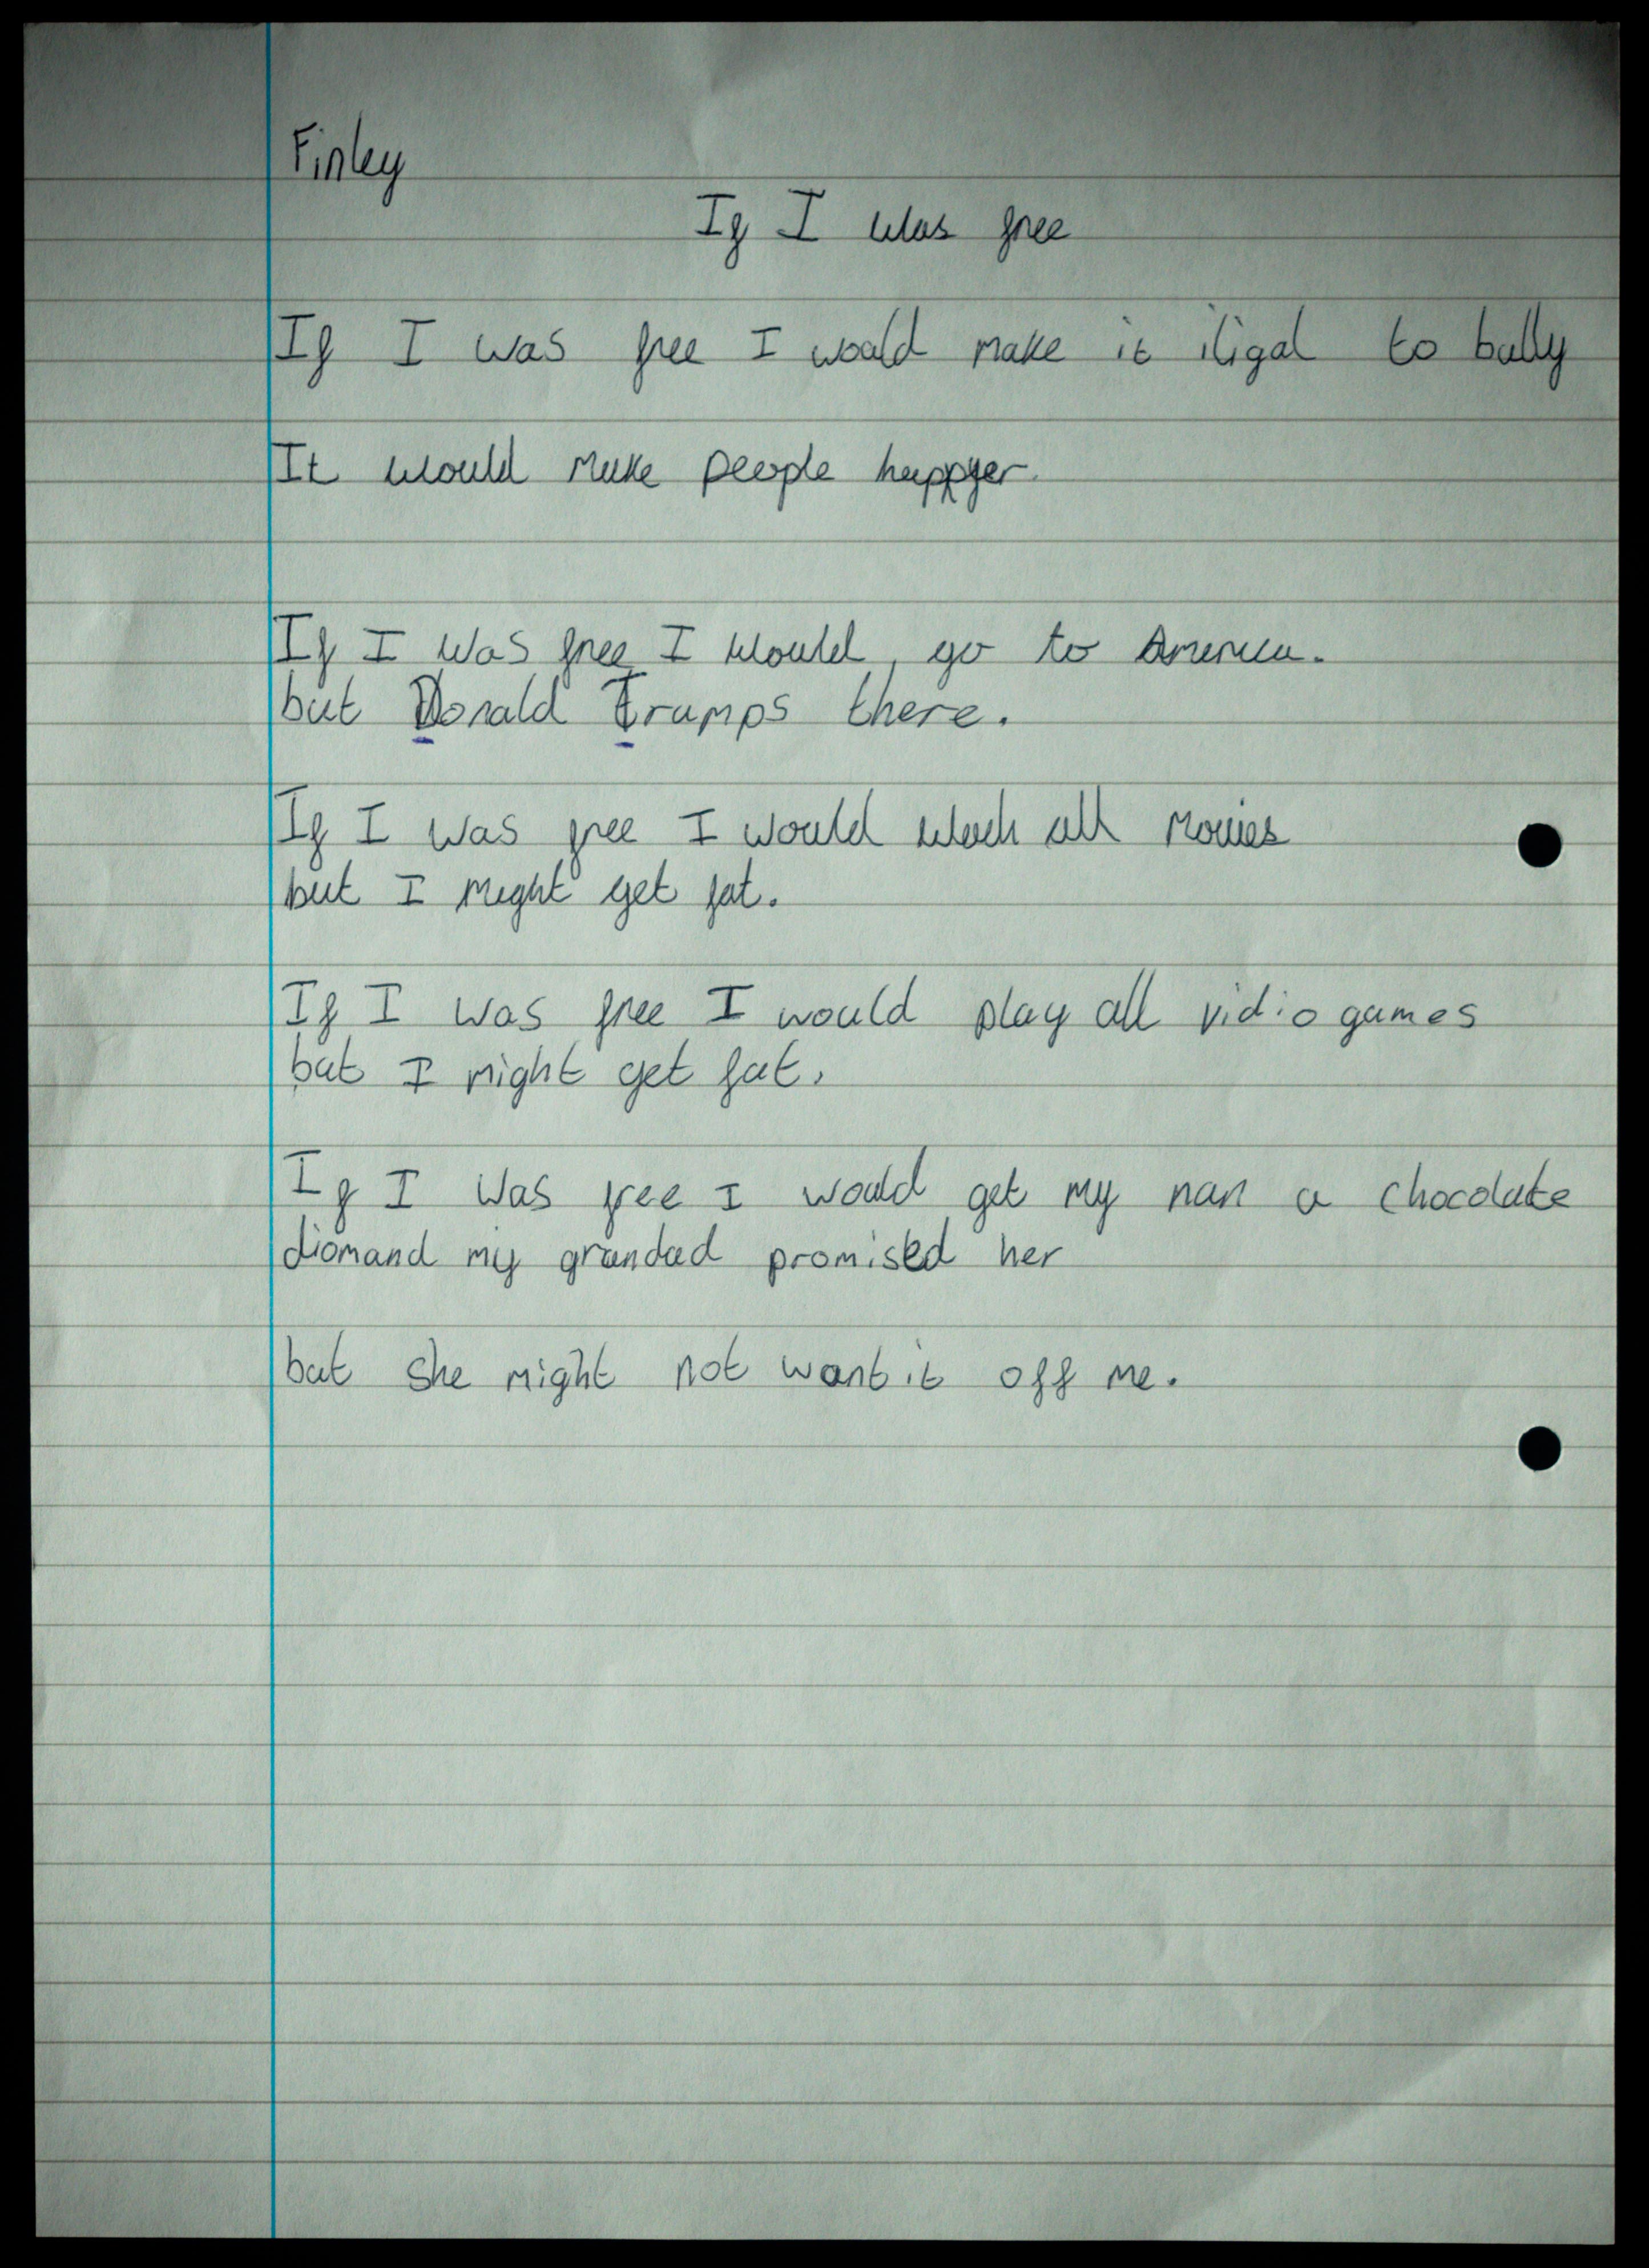 Finley
If I was free
If I was free I would make it iligal to bully
It would make people happyer.
If I was free I would, go to America.
but Donald Trumps there.
If I was free I would wach all movies
but I might get fat.
If I was free I would play all vidio games
but I might get fat.
If I was free I would get my nan a chocolate
diomand my grandad promised her
but she might not want it off me.